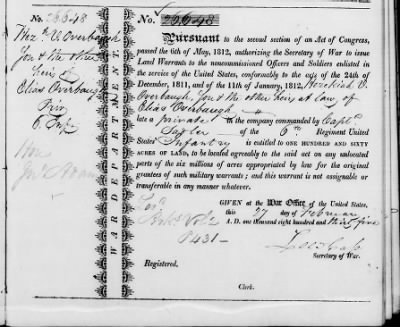 No. 26648
Hez. U. Overbaugh
Son & the other
heir of
Elias Overbaugh
Priv
6. Inf.
WAR DEPARTMENT
No. 26648
Pursuant to the second section of an Act of Congress,
passed the 6th of May, 1812, authorizing the Secretary of War to issue
Land Warrants to the noncommissioned Officers and Soldiers enlisted in
the service of the United States, conformably to the acts of the 24th of
December, 1811, and of the 11th of January, 1812, Hezekiah U.
Overbaugh, Son & the other heir at law of
Elias Overbaugh
late a private in the company commanded by Capt.
of the 6th Regiment United
States' Infantry
is entitled to ONE HUNDRED AND SIXTY
ACRES OF LAND, to be located agreeably to the said act on any unlocated
parts of the six millions of acres appropriated by law for the original
grantees of such military warrants; and this warrant is not assignable or
transferable in any manner whatever.
GIVEN at the War Office of the United States,
this 27 day of Februar
A. D. one thousand eight hundred and thirty five
Vol. 2
P431—
Lew Cass
Secretary of War.
Registered.
Clerk.